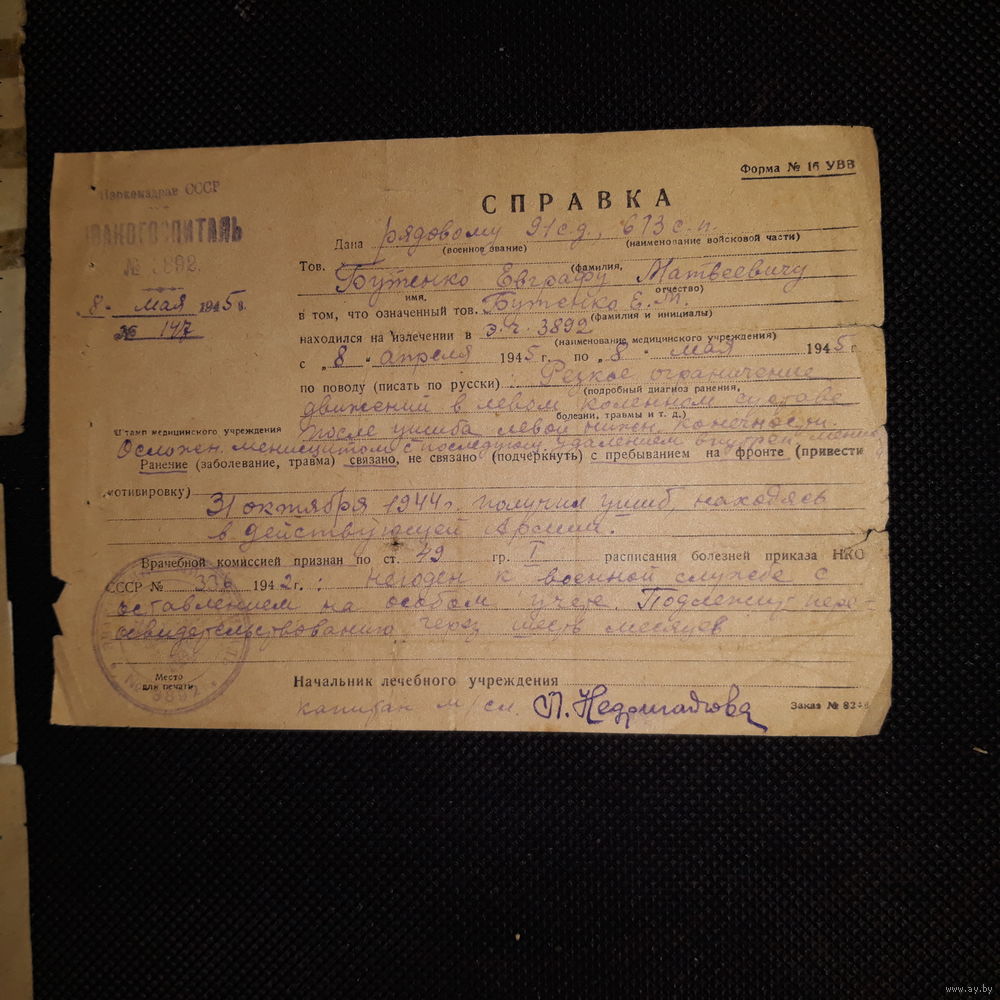 Форма № 16 УВВ
Наркомздрав СССР
ЭВАКОГОСПИТАЛЬ
№ 3892.
8 - мая 1945 г.
№ 147
СПРАВКА
Дана рядовому 91 с.д., 613 с.п.
(военное звание) (наименование войсковой части)
Тов. Бутенко Евграфу Матвеевичу
(фамилия, имя, отчество)
в том, что означенный тов. Бутенко Е. М.
(фамилия и инициалы)
находился на излечении в э.г. 3892
(наименование медицинского учреждения)
с „ 8 " апреля 1945 г. по „ 8 " мая 1945 г
по поводу (писать по русски) Резкое ограничение
(подробный диагноз ранения,
движений в левом коленном суставе
болезни, травмы и т. д.)
Штамп медицинского учреждения после ушиба левой нижн. конечности
Осложн. менисцитом с последующ. удалением
Ранение (заболевание, травма) связано, не связано (подчеркнуть) с пребыванием на фронте (привести
мотивировку)
31 октября 1944 г. получил ушиб, находясь
в действующей Армии.
Врачебной комиссией признан по ст. 49 гр. I расписания болезней приказа НКО
СССР № 336 1942 г.: Негоден к военной службе с
оставлением на особом учете. Подлежит пере-
освидетельствованию через шесть месяцев
Место
для печати
Начальник лечебного учреждения
капитан м/сл.
Заказ №
www.ay.by